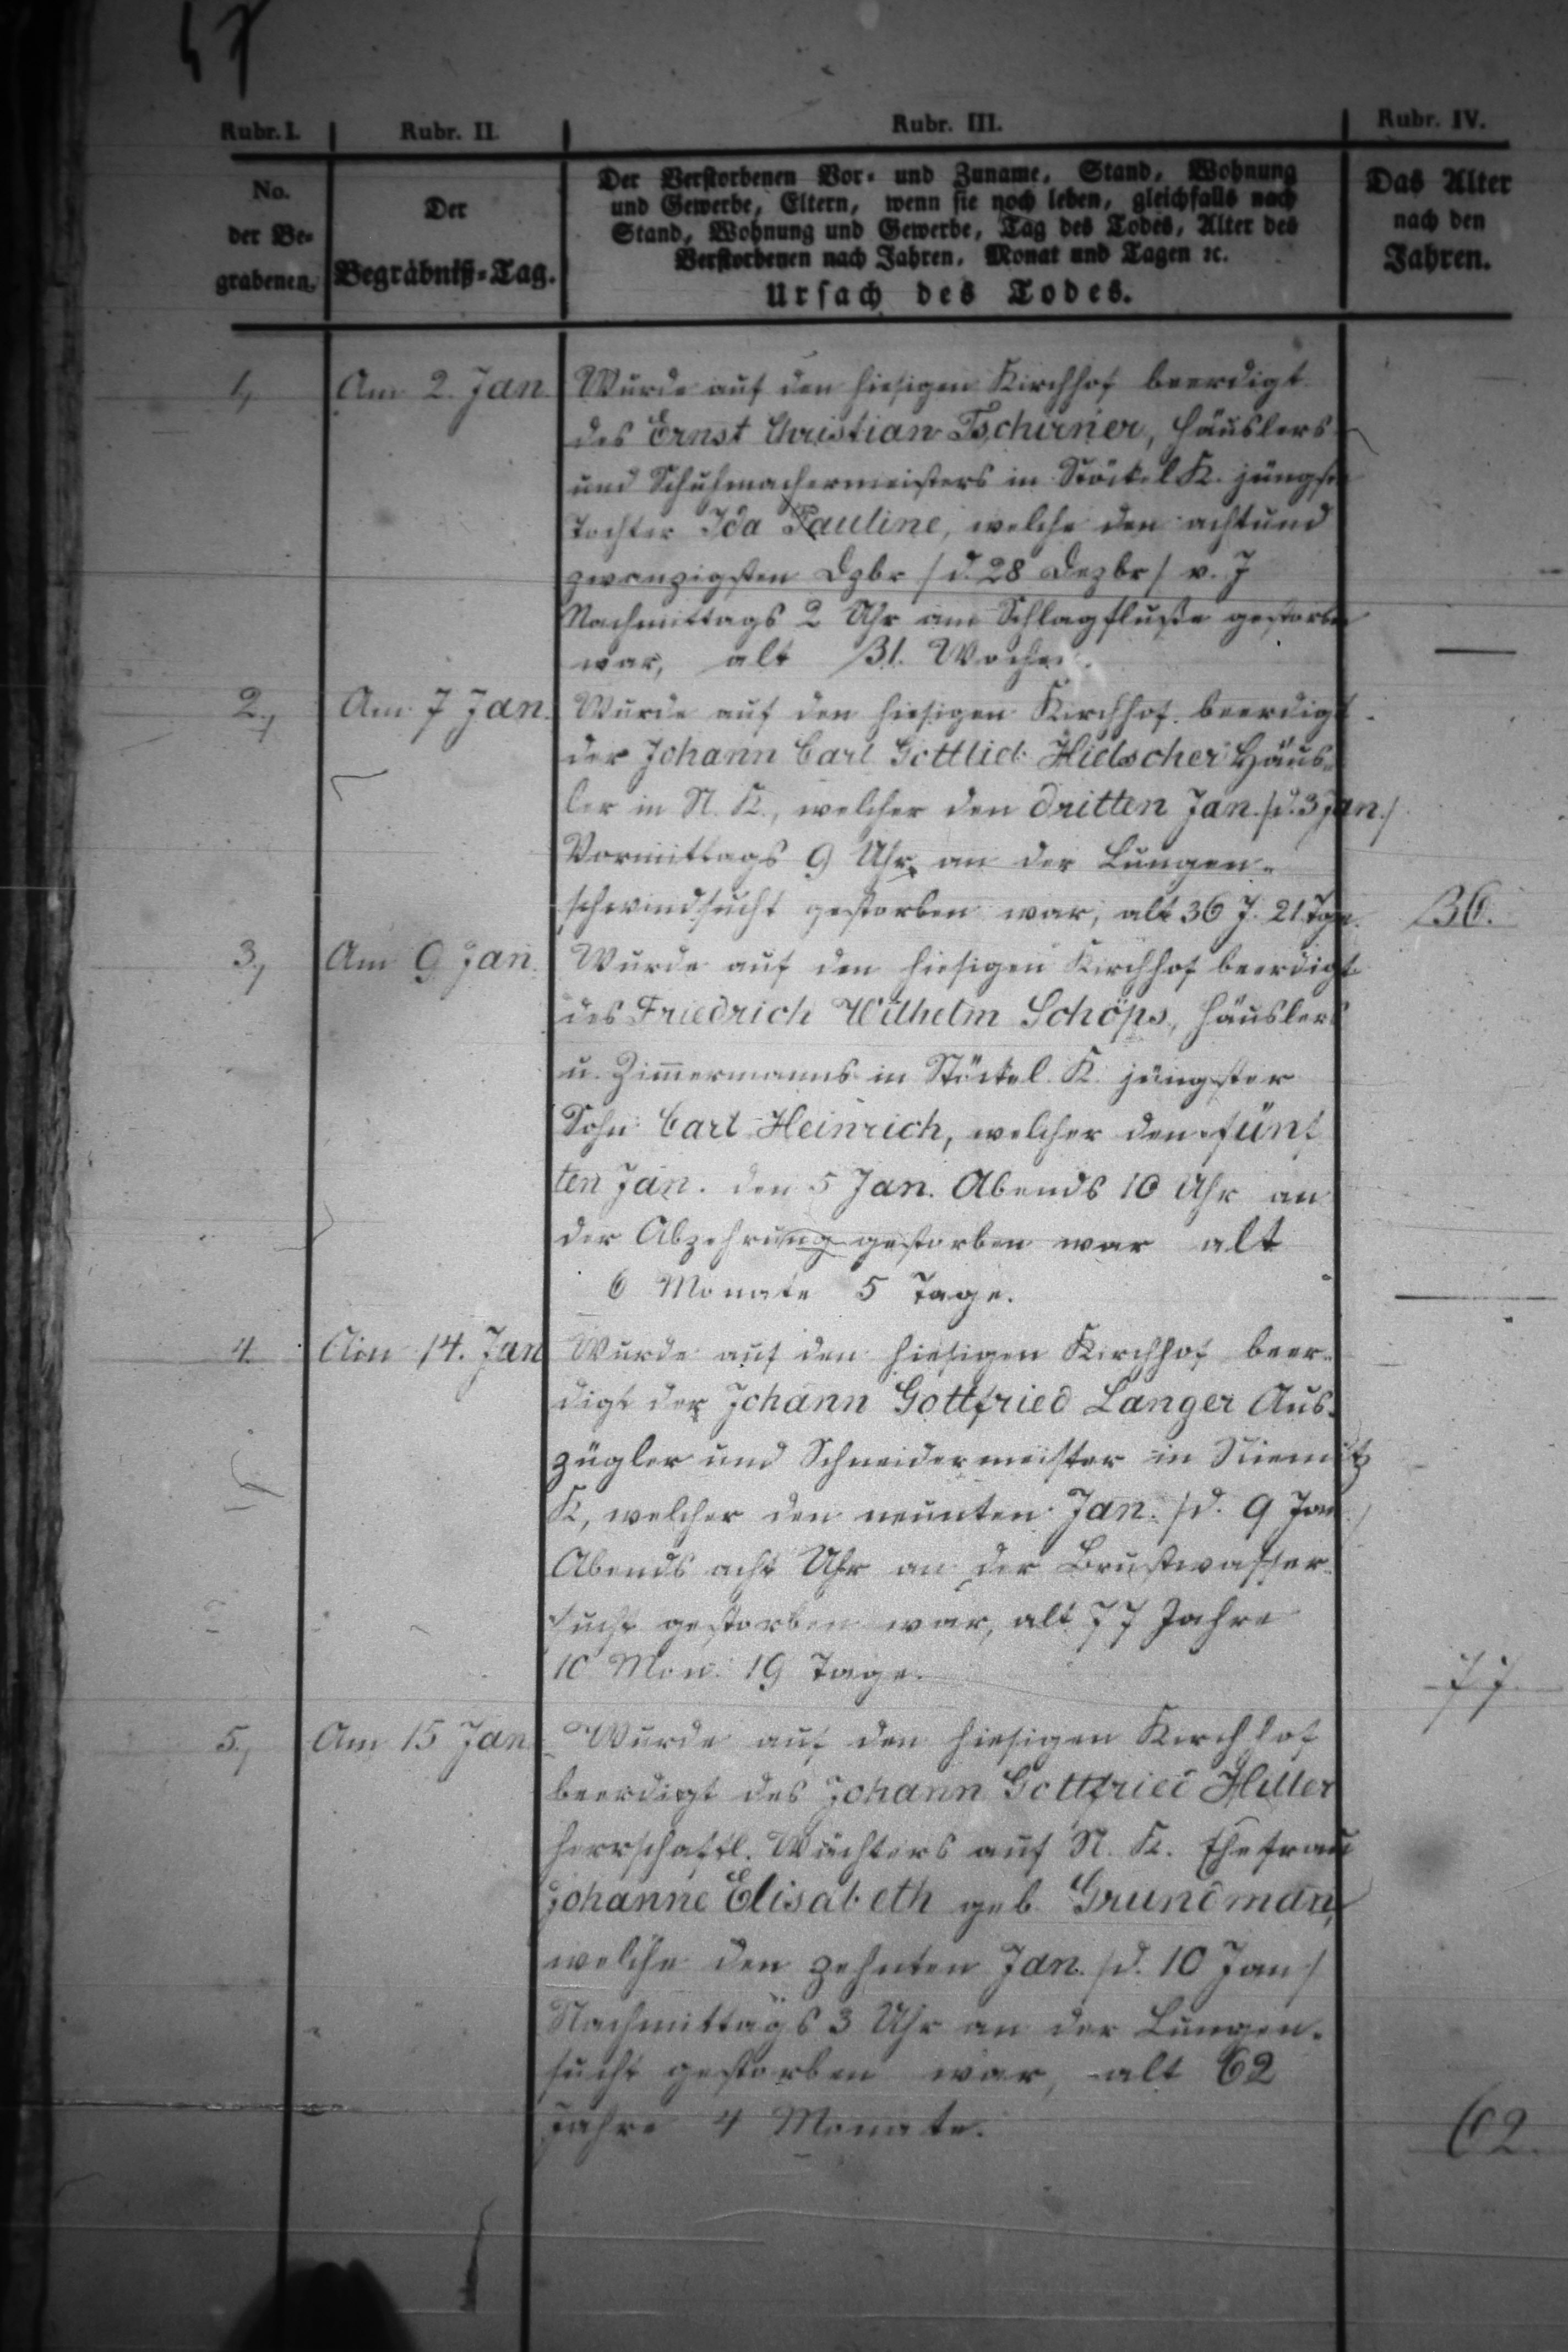 47
Rubr. I. Rubr. II. Rubr. III. Rubr. IV.
No. der Begrabenen.
Der Begräbniß-Tag.
Der Verstorbenen Vor- und Zuname, Stand, Wohnung
und Gewerbe, Eltern, wenn sie noch leben, gleichfalls nach
Stand, Wohnung und Gewerbe, Tag des Todes, Alter des
Verstorbenen nach Jahren, Monat und Tagen ꝛc.
Ursach des Todes.
Das Alter
nach den
Jahren.
1, Am 2. Jan. Wurde auf den hiesigen Kirchhof beerdigt
des Ernst Christian Tschirner, Häuslers
und Schuhmachermeisters in Stöckel K. jüngste
Tochter Ida Pauline, welche den achtund
zwanzigsten Dzbr /d. 28 Dezbr/ v. J
Nachmittags 2 Uhr am Schlagfluße gestorben
war, alt 31. Wochen. —
2., Am 7 Jan. Wurde auf den hiesigen Kirchhof beerdigt
der Johann Carl Gottlieb Hielscher Häus-
ler in N. K., welcher den dritten Jan. /d. 3 Jan./
Vormittags 9 Uhr an der Lungen-
schwindsucht gestorben war, alt 36 J. 21 Tge. 36.
3., Am 9 Jan. Wurde auf den hiesigen Kirchhof beerdigt
des Friedrich Wilhelm Schöps, Häuslers
u. Zimmermanns in Stöckel K. jüngster
Sohn Carl Heinrich, welcher den fünf
ten Jan. den 5 Jan. Abends 10 Uhr an
der Abzehrung gestorben war alt
6 Monate 5 Tage. —
4. Am 14. Jan Wurde auf den hiesigen Kirchhof beer-
digt der Johann Gottfried Langer Aus-
zügler und Schneidermeister in Niemitz
K, welcher den neunten Jan. /d. 9 Jan./
Abends acht Uhr an der Brustwasser-
sucht gestorben war, alt 77 Jahre
10 Mon. 19 Tage. 77.
5., Am 15 Jan. Wurde auf den hiesigen Kirchhof
beerdigt des Johann Gottfried Hiller
herrschaftl. Wächters auf N. K. Ehefrau
Johanne Elisabeth geb. Grundman,
welche den zehnten Jan. /d. 10 Jan/
Nachmittags 3 Uhr an der Lungen-
sucht gestorben war, alt 62
Jahre 4 Monate. 62.